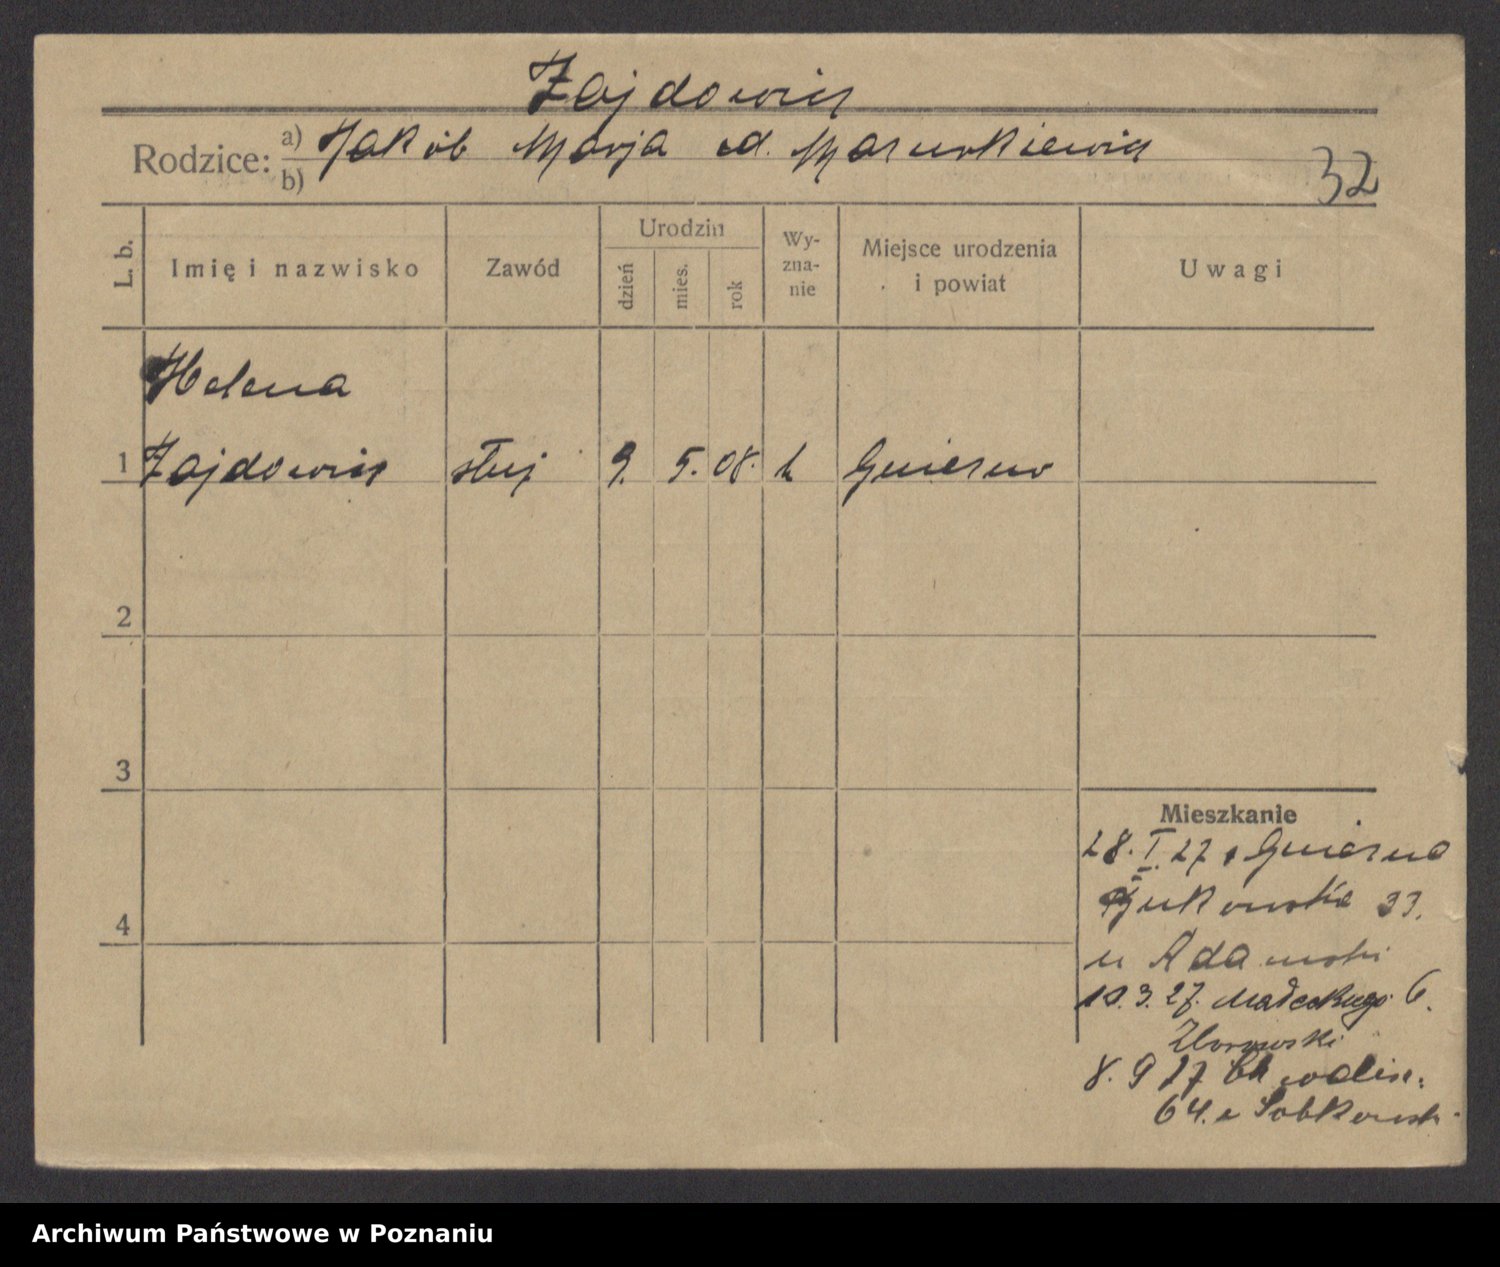 Zajdowicz
Rodzice: a) Jakób Marja ed. Mazurkiewicz
b)
32
L. b.
Imię i nazwisko
Zawód
Urodzin
dzień
mies.
rok
Wy-
zna-
nie
Miejsce urodzenia
i powiat
Uwagi
Helena
1 Zajdowicz służ 9. 5. 08. k Gniezno
2
3
4
Mieszkanie
28. I. 27 Gniezna
33.
u Adamski
10. 3. 27. Małeckiego 6.
Zborowski
8. 9 27
64. u Sobkowski
Archiwum Państwowe w Poznaniu